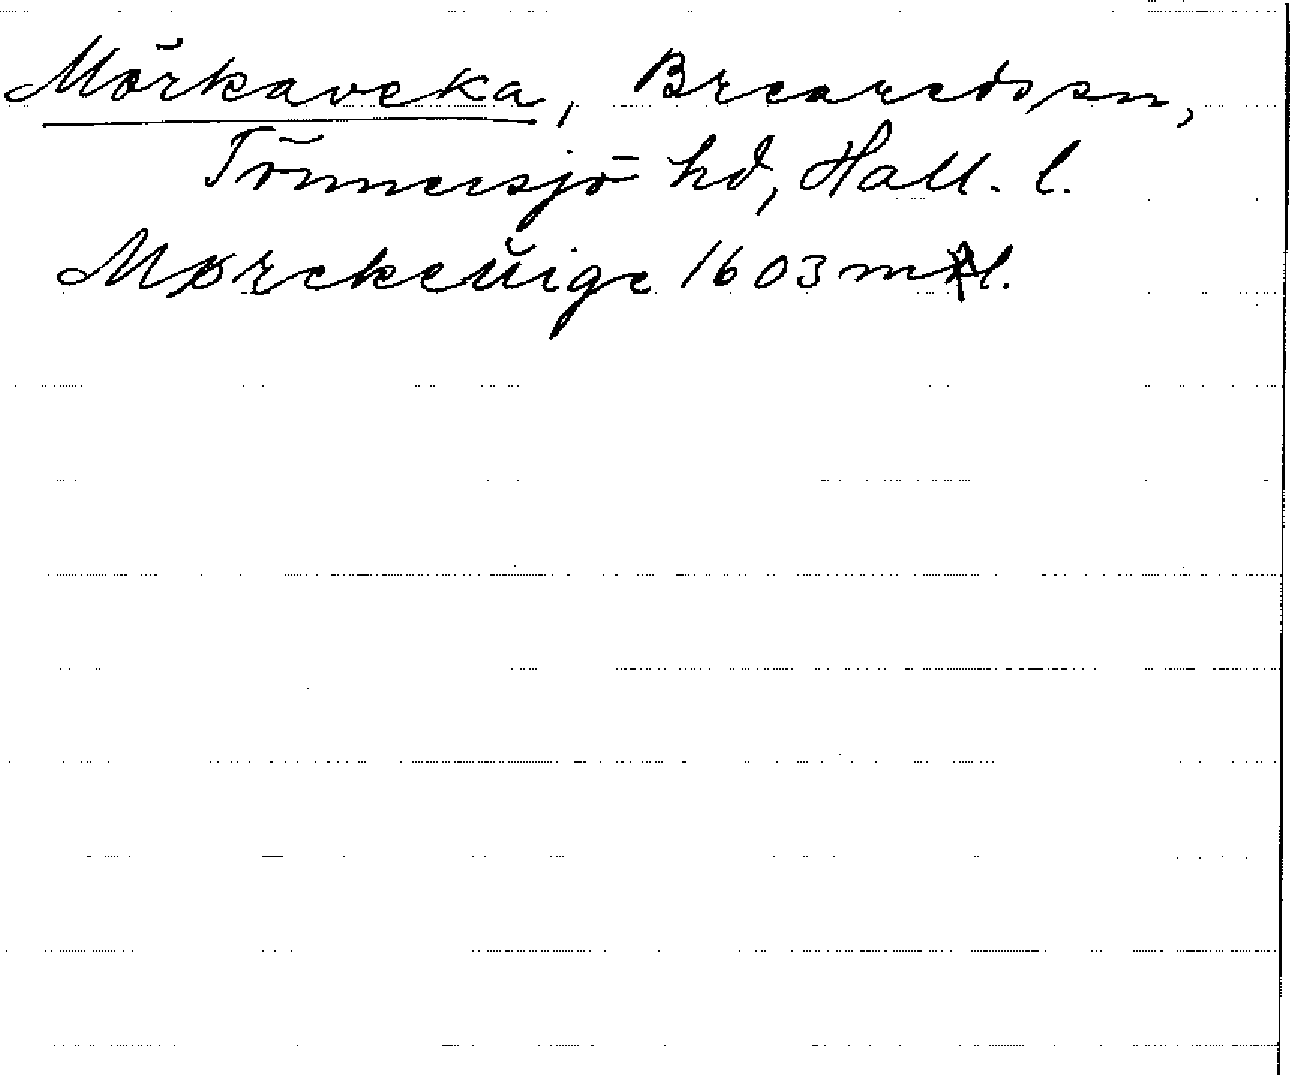 Mörkaveka, Breareds sn,
Tönnersjö hd, Hall. l.
Mørckeŭige 1603 mtl.